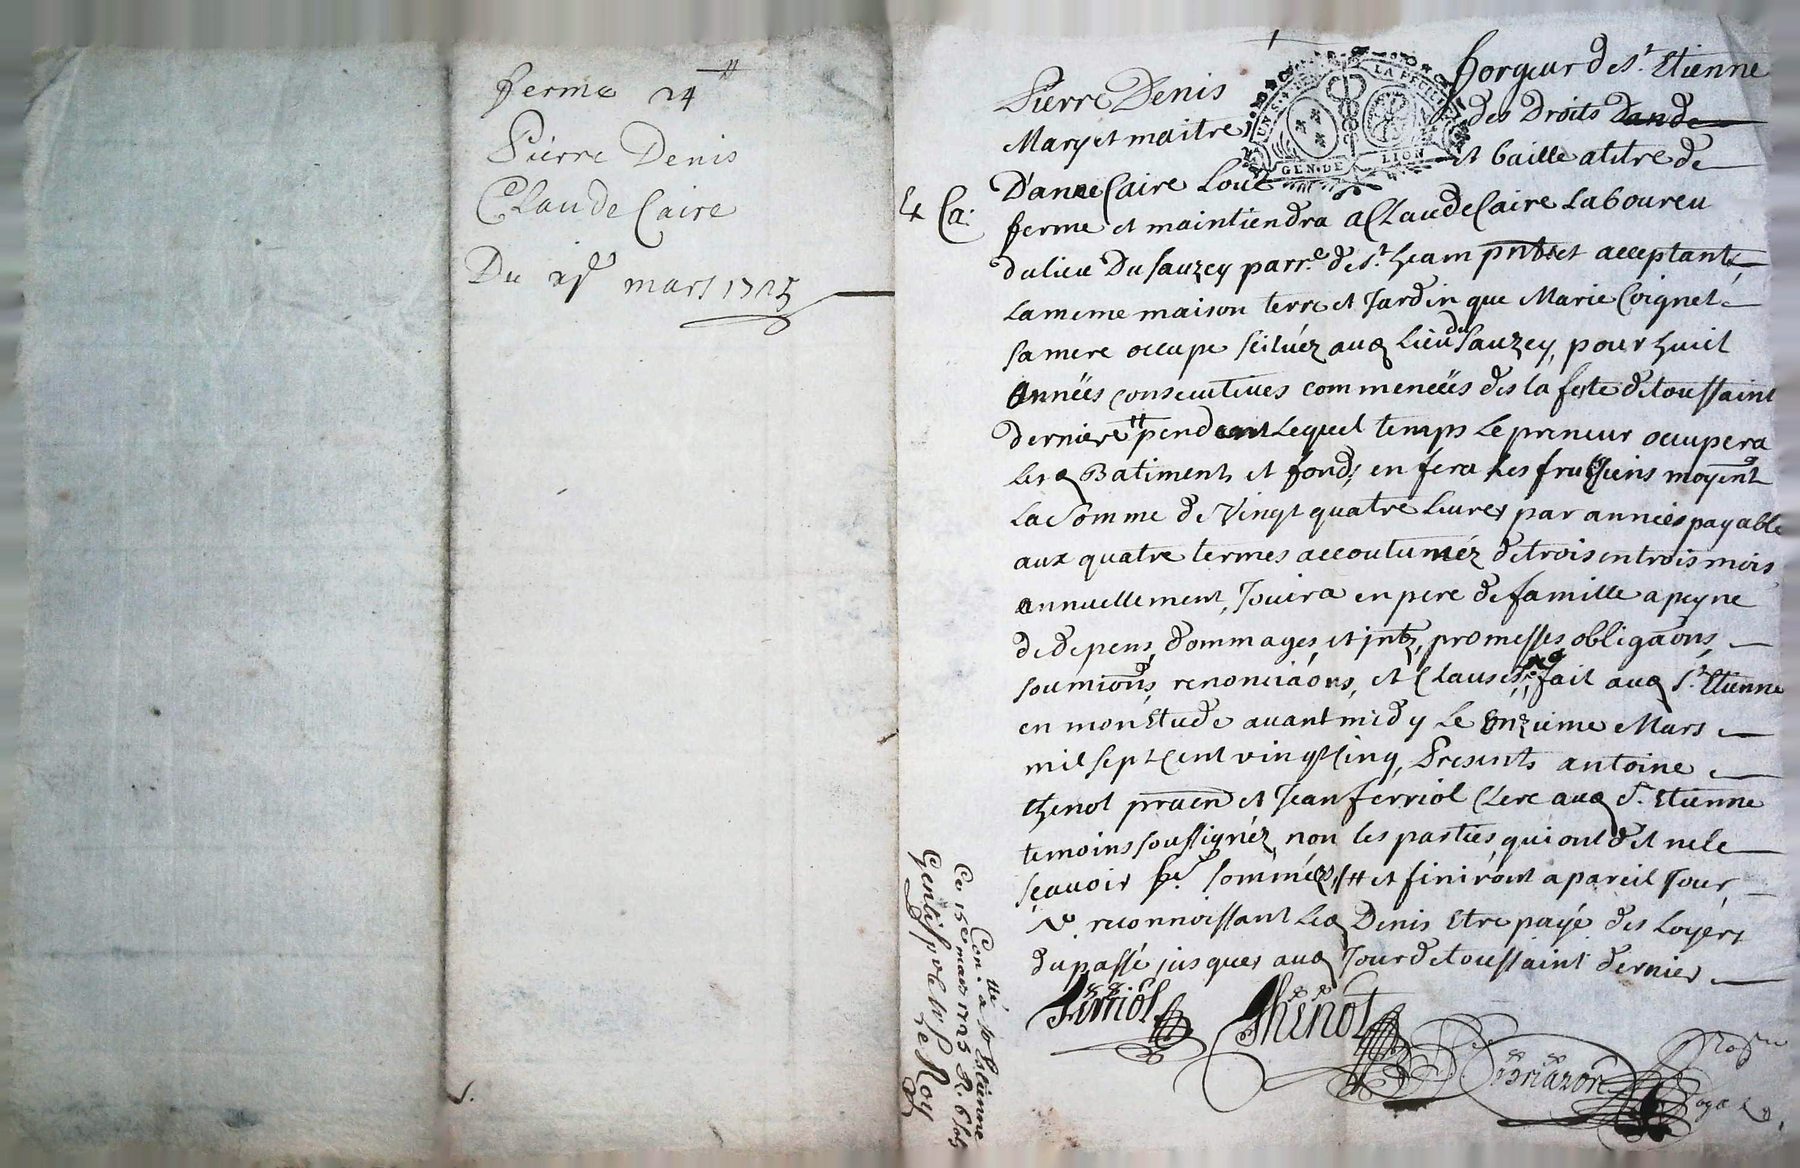 ferme 24 ₶
Pierre Denis
Claude Caire
Du xj.e mars 1725
Pierre Denis forgeur de St. Etienne
Mary et maitre des Droits
D'anne Caire Loue et baille a titre de
4 Ca.
ferme et maintiendra a Claude Caire Laboureu
du lieu Du Sauzey parr.e de St. heam pnt et acceptant
La meme maison terre et Jardin que Marie Coignet
sa mere occupe scituéz aud Lieu du Sauzey, pour huict
Années consecutives commencées des la feste de toussaint
derniere # pendant Lequel temps Le preneur occupera
Lesd Batiments et fonds en fera Les fruits siens moyent
La Somme de Vingt quatre Livres par années payable
aux quatre termes accoutuméz de trois en trois mois
annuellement, Jouira en pere de famille a peyne
de depens, dommages et jntz, promesses obligaons,
soumions, renonciaons, et Clauses, fait aud St. Etienne
en mon Etude avant midy Le Onzieme Mars
mil sept Cent vingt Cinq, Presents antoine
thenot pratien et Jean ferriol Clerc aud St. Etienne
temoins soussignéz, non les parties qui ont dit ne le
sçavoir Sommées, # et finiront a pareil Jour,
reconnoissant Led Denis Etre payé des Loyers
du passé jusques aud Jour de toussaint dernier
ferriol Thenot
Briazon
Con.llé a St Estienne
Ce 15e mars 1725 R. 6 sols
Le Roy